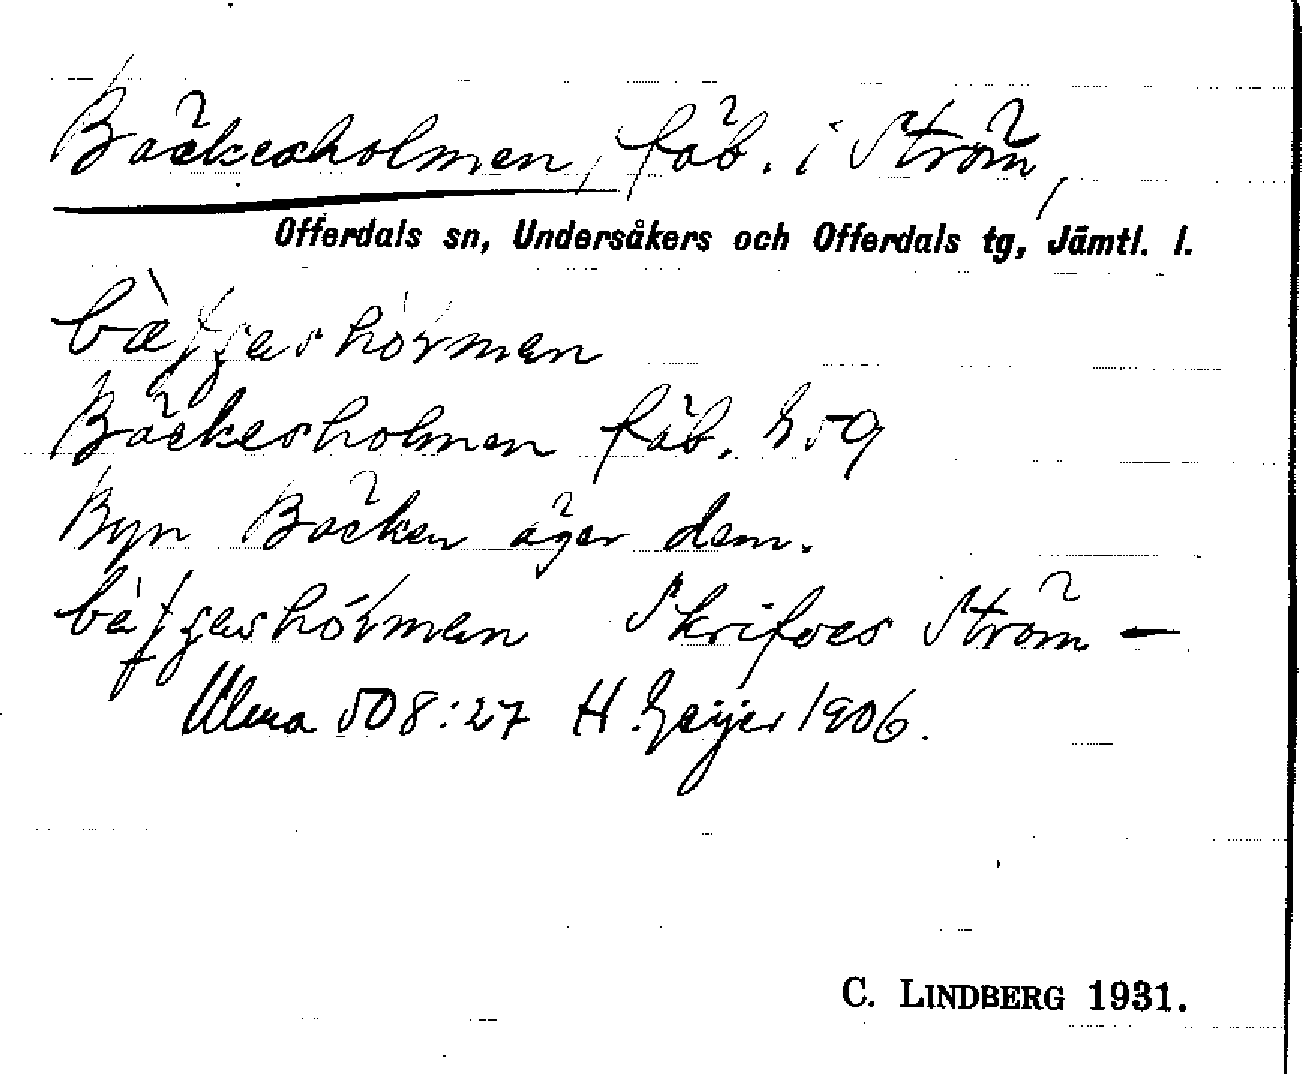 Bäckesholmen, fäb. i Ström,
Offerdals sn, Undersåkers och Offerdals tg, Jämtl. l.
Bäckesholmen fäb. G 59
Byn Bäcken äger dem.
Skrifves Ström –
Ulma 508:27 H. Geijer 1906.
C. LINDBERG 1931.